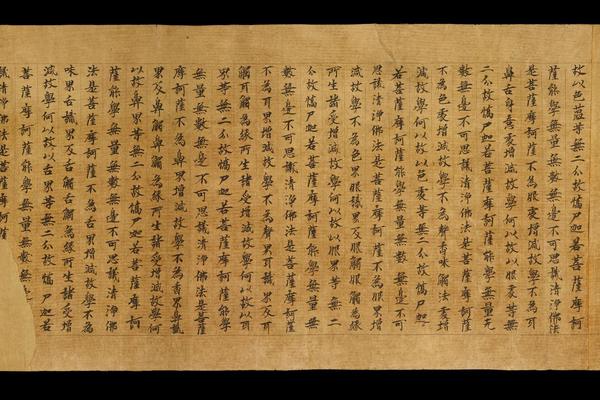 故以色蘊等無二分故憍尸迦若菩薩摩訶
薩能學無量無數無邊不可思議清淨佛法
是菩薩摩訶薩不為眼處增減故學不為耳
鼻舌身意處增減故學何以故以眼處等無
二分故憍尸迦若菩薩摩訶薩能學無量无
數無邊不可思議清淨佛法是菩薩摩訶薩
不為色處增減故學不為聲香味觸法處增
減故學何以故以色處等無二分故憍尸迦
若菩薩摩訶薩能學無量無數無邊不可
思議清淨佛法是菩薩摩訶薩不為眼界增
減故學不為色界眼識界及眼觸眼觸為緣
所生諸受增減故學何以故以眼界等無二
分故憍尸迦若菩薩摩訶薩能學無量無
數無邊不可思議清淨佛法是菩薩摩訶薩
不為耳界增減故學不為聲界耳識界及耳
觸耳觸為緣所生諸受增減故學何以故以耳
界等無二分故憍尸迦若菩薩摩訶薩能學
無量無數無邊不可思議清淨佛法是菩薩
摩訶薩不為鼻界增減故學不為香界鼻識
界及鼻觸鼻觸為緣所生諸受增減故學何
以故以鼻界等無二分故憍尸迦若菩薩摩訶
薩能學無量無數無邊不可思議清淨佛
法是菩薩摩訶薩不為舌界增減故學不為
味界舌識界及舌觸舌觸為緣所生諸受增
減故學何以故以舌界等無二分故憍尸迦若
菩薩摩訶薩能學無量無數無
議清淨佛法是菩薩摩訶薩